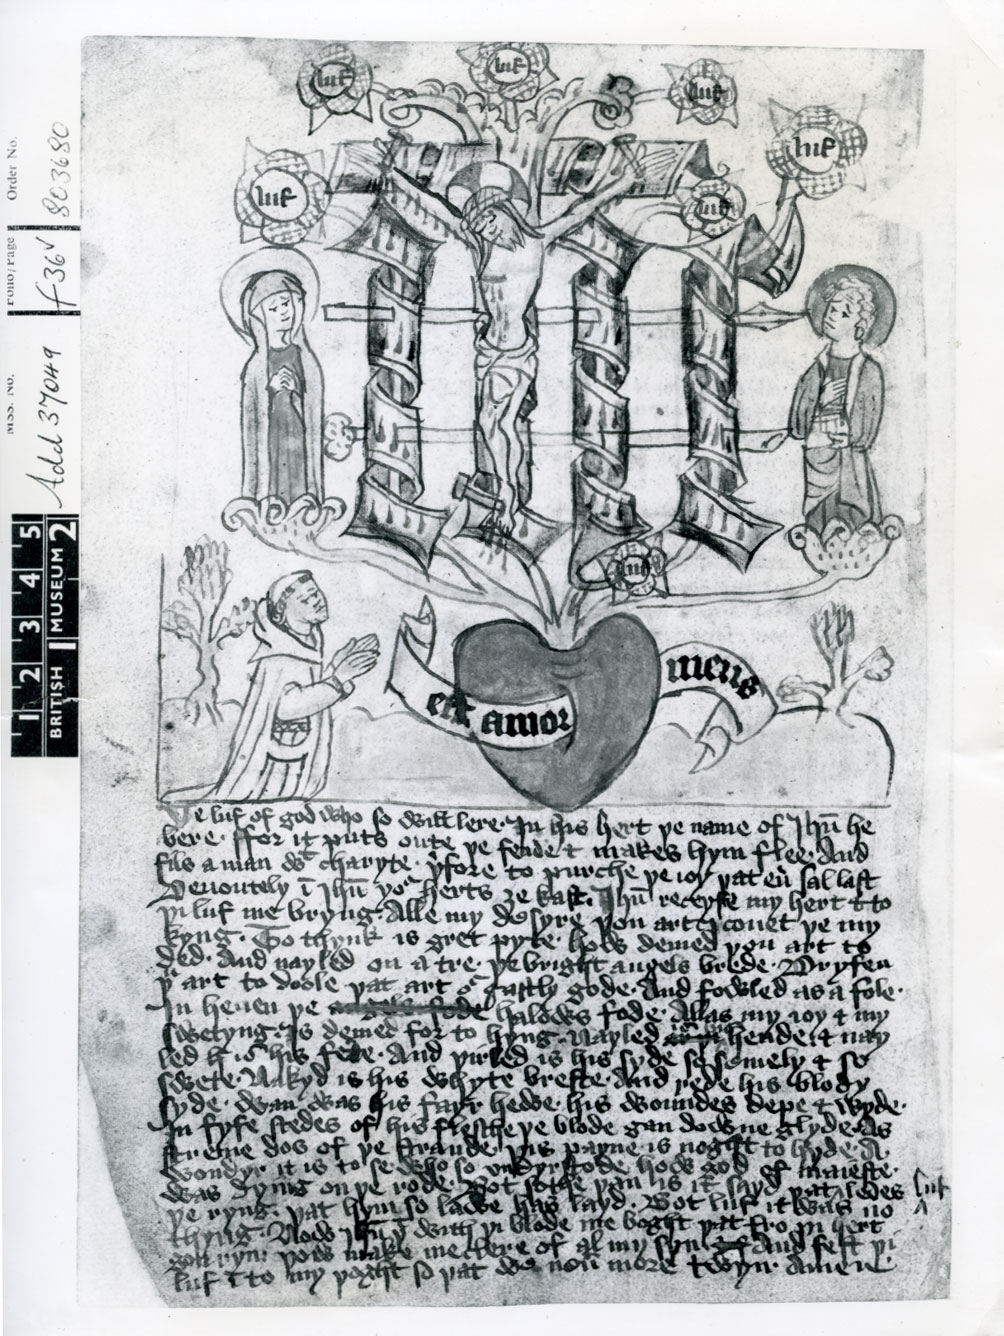 MSS. No. Add 37049
Folio/Page f 36v
Order No. 803680
1 2 3 4 5
BRITISH MUSEUM 2
luf
luf
luf
luf
luf
luf
luf
est amor meus
þe luf of god who so will lere· In his hert þe name of Ihū he
bere· ffor it puts oute þe fende & makes hym flee· And
fils a man wt charyte· þfore to purche þe ioy þat eū sal last
Deuoutely ī Ihū yor herts ȝe kast· Ihū receyfe my hert & to
þi luf me bryng· Alle my desyre þou art I couet þe my
kyng· To thynk is gret pyte· how demed þou art to
ded· And nayled on a tre· þe bright angels brede· Dryfen
þu art to doole þat art or gastly gode· And fowled as a fole·
In heuen þe halows fode· Allas my ioy & my
swetyng· Is demed for to hyng· Nayled hende· & nay
led his fete· And þirled is his syde so semely & so
swete· Nakyd is his whyte breste· And rede his blody
syde· Wan was his fayr hewe· his woundes depe & wyde·
In fyfe stedes of his flesche þe blode gan downe glyde· As
streme dos of þe strande· þis payne is noght to hyde· A
wondyr it is to se who so vndyrstode· how god of maieste·
was dying on þe rode· Bot sothe þan is it sayd· þat ledes luf
þe ryng· þat hym so lawe has layd· Bot luf it was no
thyng· Now Ihū wiþ þi blode me boght þat fro þi hert
gon ryn· þow make me clere of al my syn· And fest þi
luf ī to my þoght so þat we neū more twyn· Amen